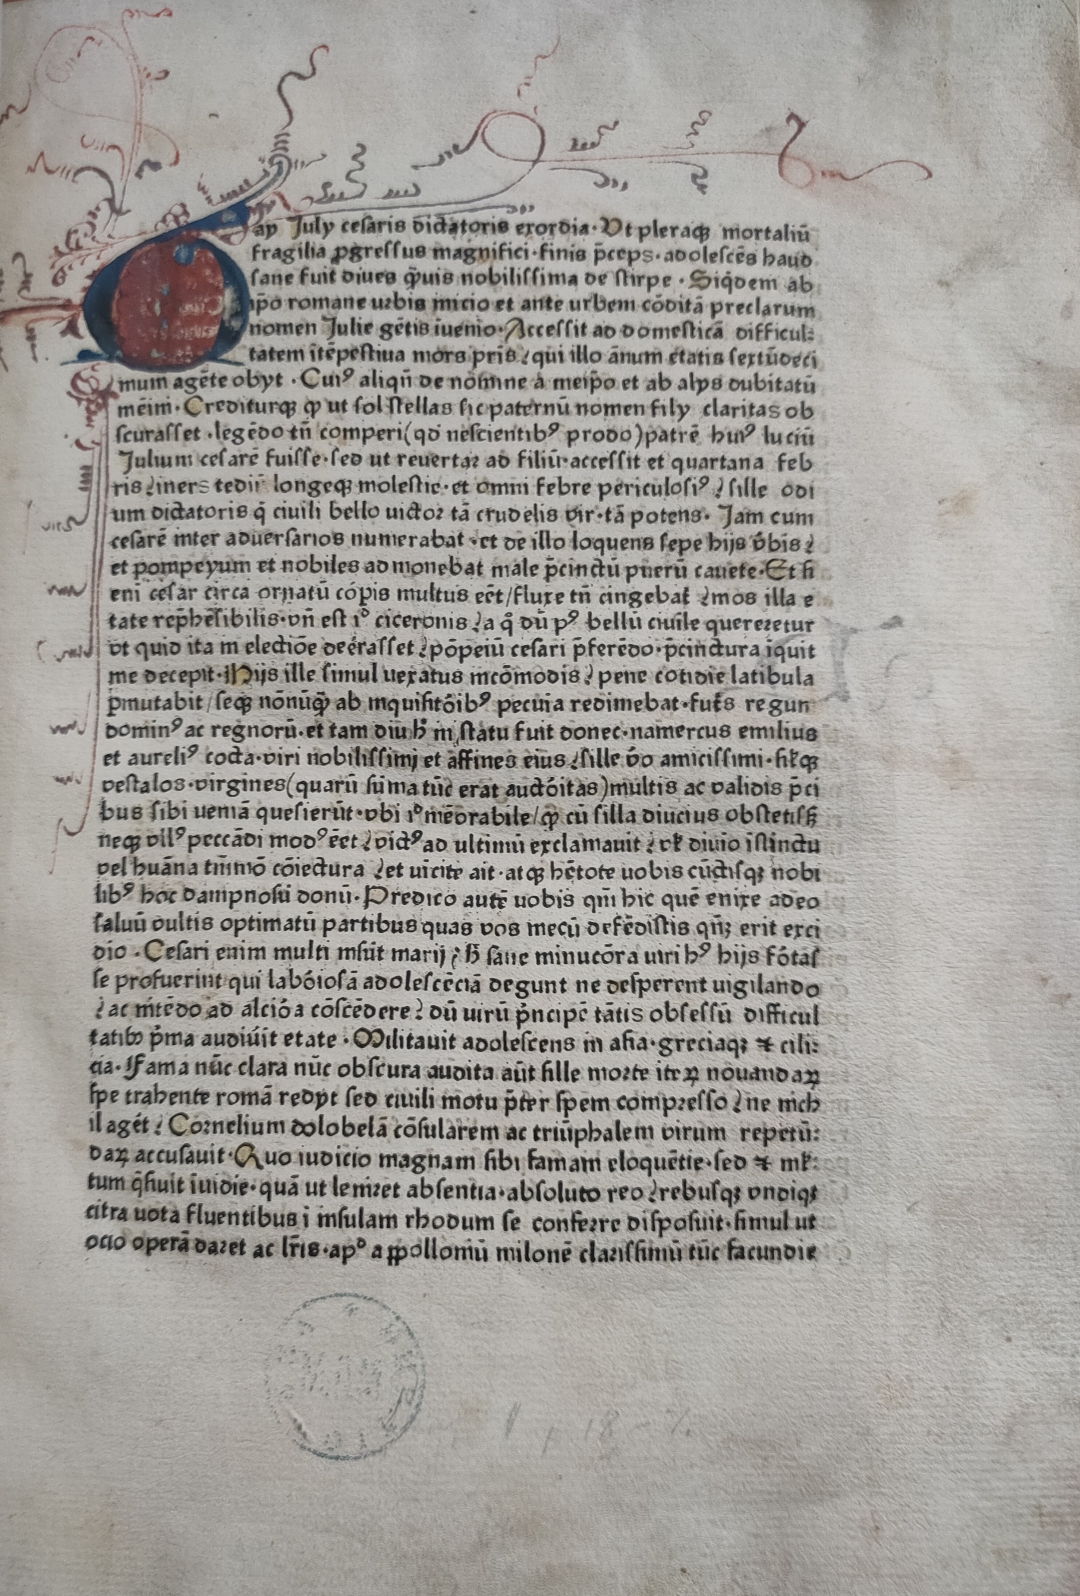 ap Iuly cesaris dictatoris exordia · Ut pleraqꝫ mortaliū
fragilia ꝓgressus magnifici · finis p̄ceps · adolescēs haud
sane fuit diues q̄uis nobilissima de stirpe · Siq̄dem ab
ip̄o romane urbis inicio et ante urbem cōditā preclarum
nomen Iulie gētis iuenio · Accessit ad domesticā difficul:
tatem ītēpestiua mors pris ⸵ qui illo ānum etatis sextūdeci
mum agēte obyt · Cuiꝰ aliqn̄ de nomine a meip̄o et ab alys dubitatū
mēim · Crediturqꝫ ꝙ ut sol stellas sic paternū nomen fily claritas ob
scurasset · legēdo tn̄ comperi (qd nescientibꝰ prodo) patrē huiꝰ luciū
Iulium cesarē fuisse · sed ut reuertar ad filiū · accessit et quartana feb
ris ⸵ iners tedii longeqꝫ molestie · et omni febre periculosiꝰ ⸵ sille odi
um dictatoris q̄ ciuili bello uictor tā crudelis vir · tā potens · Iam cum
cesarē inter aduersarios numerabat · et de illo loquens sepe hijs v̄bis ⸵
et pompeyum et nobiles admonebat male p̄cinctū puerū cauete · Et si
eni cesar circa ornatū córpis multus eēt / fluxe tn̄ cingebat̄ ⸵ mos illa e
tate rep̄hēsibilis · vn̄ est i⁰ ciceronis ⸵ a q̄ dū pꝰ bellū ciuile quereretur
vt quid ita in electiōe deérasset ⸵ pōpeiū cesari p̄ferēdo · p̄cinctura īquit
me decepit · Hijs ille simul uexatus incōmodis ⸵ pene cotidie latibula
ꝑmutabit / seqꝫ nōnūq̄ ab inquisitóibꝰ pecuīa redimebat · futs̄ regun
dominꝰ ac regnorū · et tam diu h̄ in statu fuit donec · namercus emilius
et aureliꝰ cocta · viri nobilissimi et affines eius ⸵ sille v̄o amicissimi · sil̄qꝫ
vestalos · virgines (quarū sūma tūc erat auctóitas) multis ac validis p̄ci
bus sibi ueniā quesierūt · vbi i⁰ mēorabile / ꝙ cū silla diucius obstetiss̄
neqꝫ vllꝰ peccādi modꝰ eēt ⸵ victꝰ ad ultimū exclamauit ⸵ vl̄ diuīo īstinctu
vel huāna tm̄mō cōiectura ⸵ et uīcite ait · atqꝫ hētote uobis cūctisqꝫ nobi
libꝰ hoc dampnosū donū · Predico autē uobis qm̄ hic quē enixe adeo
saluū vultis optimatū partibus quas vos mecū defēdistis qn̄ꝫ erit exci
dio · Cesari enim multi insūt marij ⸵ h̄ sane minucōra uiri hꝰ hijs fótas
se profuerint qui labóiosā adolescēciā degunt ne desperent uigilando
⸵ ac intēdo ad alcióa cōscēdere ⸵ dū uirū p̄ncipē tātis obsessū difficul
tatibꝰ p̄ma audiúit etate · Militauit adolescens in asia · greciaqꝫ ⁊ cili:
cia · Fama nūc clara nūc obscura audita aūt sille morte iteꝝ nouandaꝝ
spe trahente romā redyt sed ciuili motu p̄ter spem compresso ⸵ ne nich
il agét ⸵ Cornelium dolobelā cōsularem ac triūphalem virum repetū:
daꝝ accusauit · Quo iudicio magnam sibi famam eloquētie · sed ⁊ ml̄:
tum q̄siuit īuidie · quā ut leniret absentia · absoluto reo ⸵ rebusqꝫ vndiqꝫ
citra uota fluentibus ī insulam rhodum se conferre disposuit · simul ut
ocio operā daret ac lr̄is · apᵈ appollomiū milonē clarissimū tūc facundie